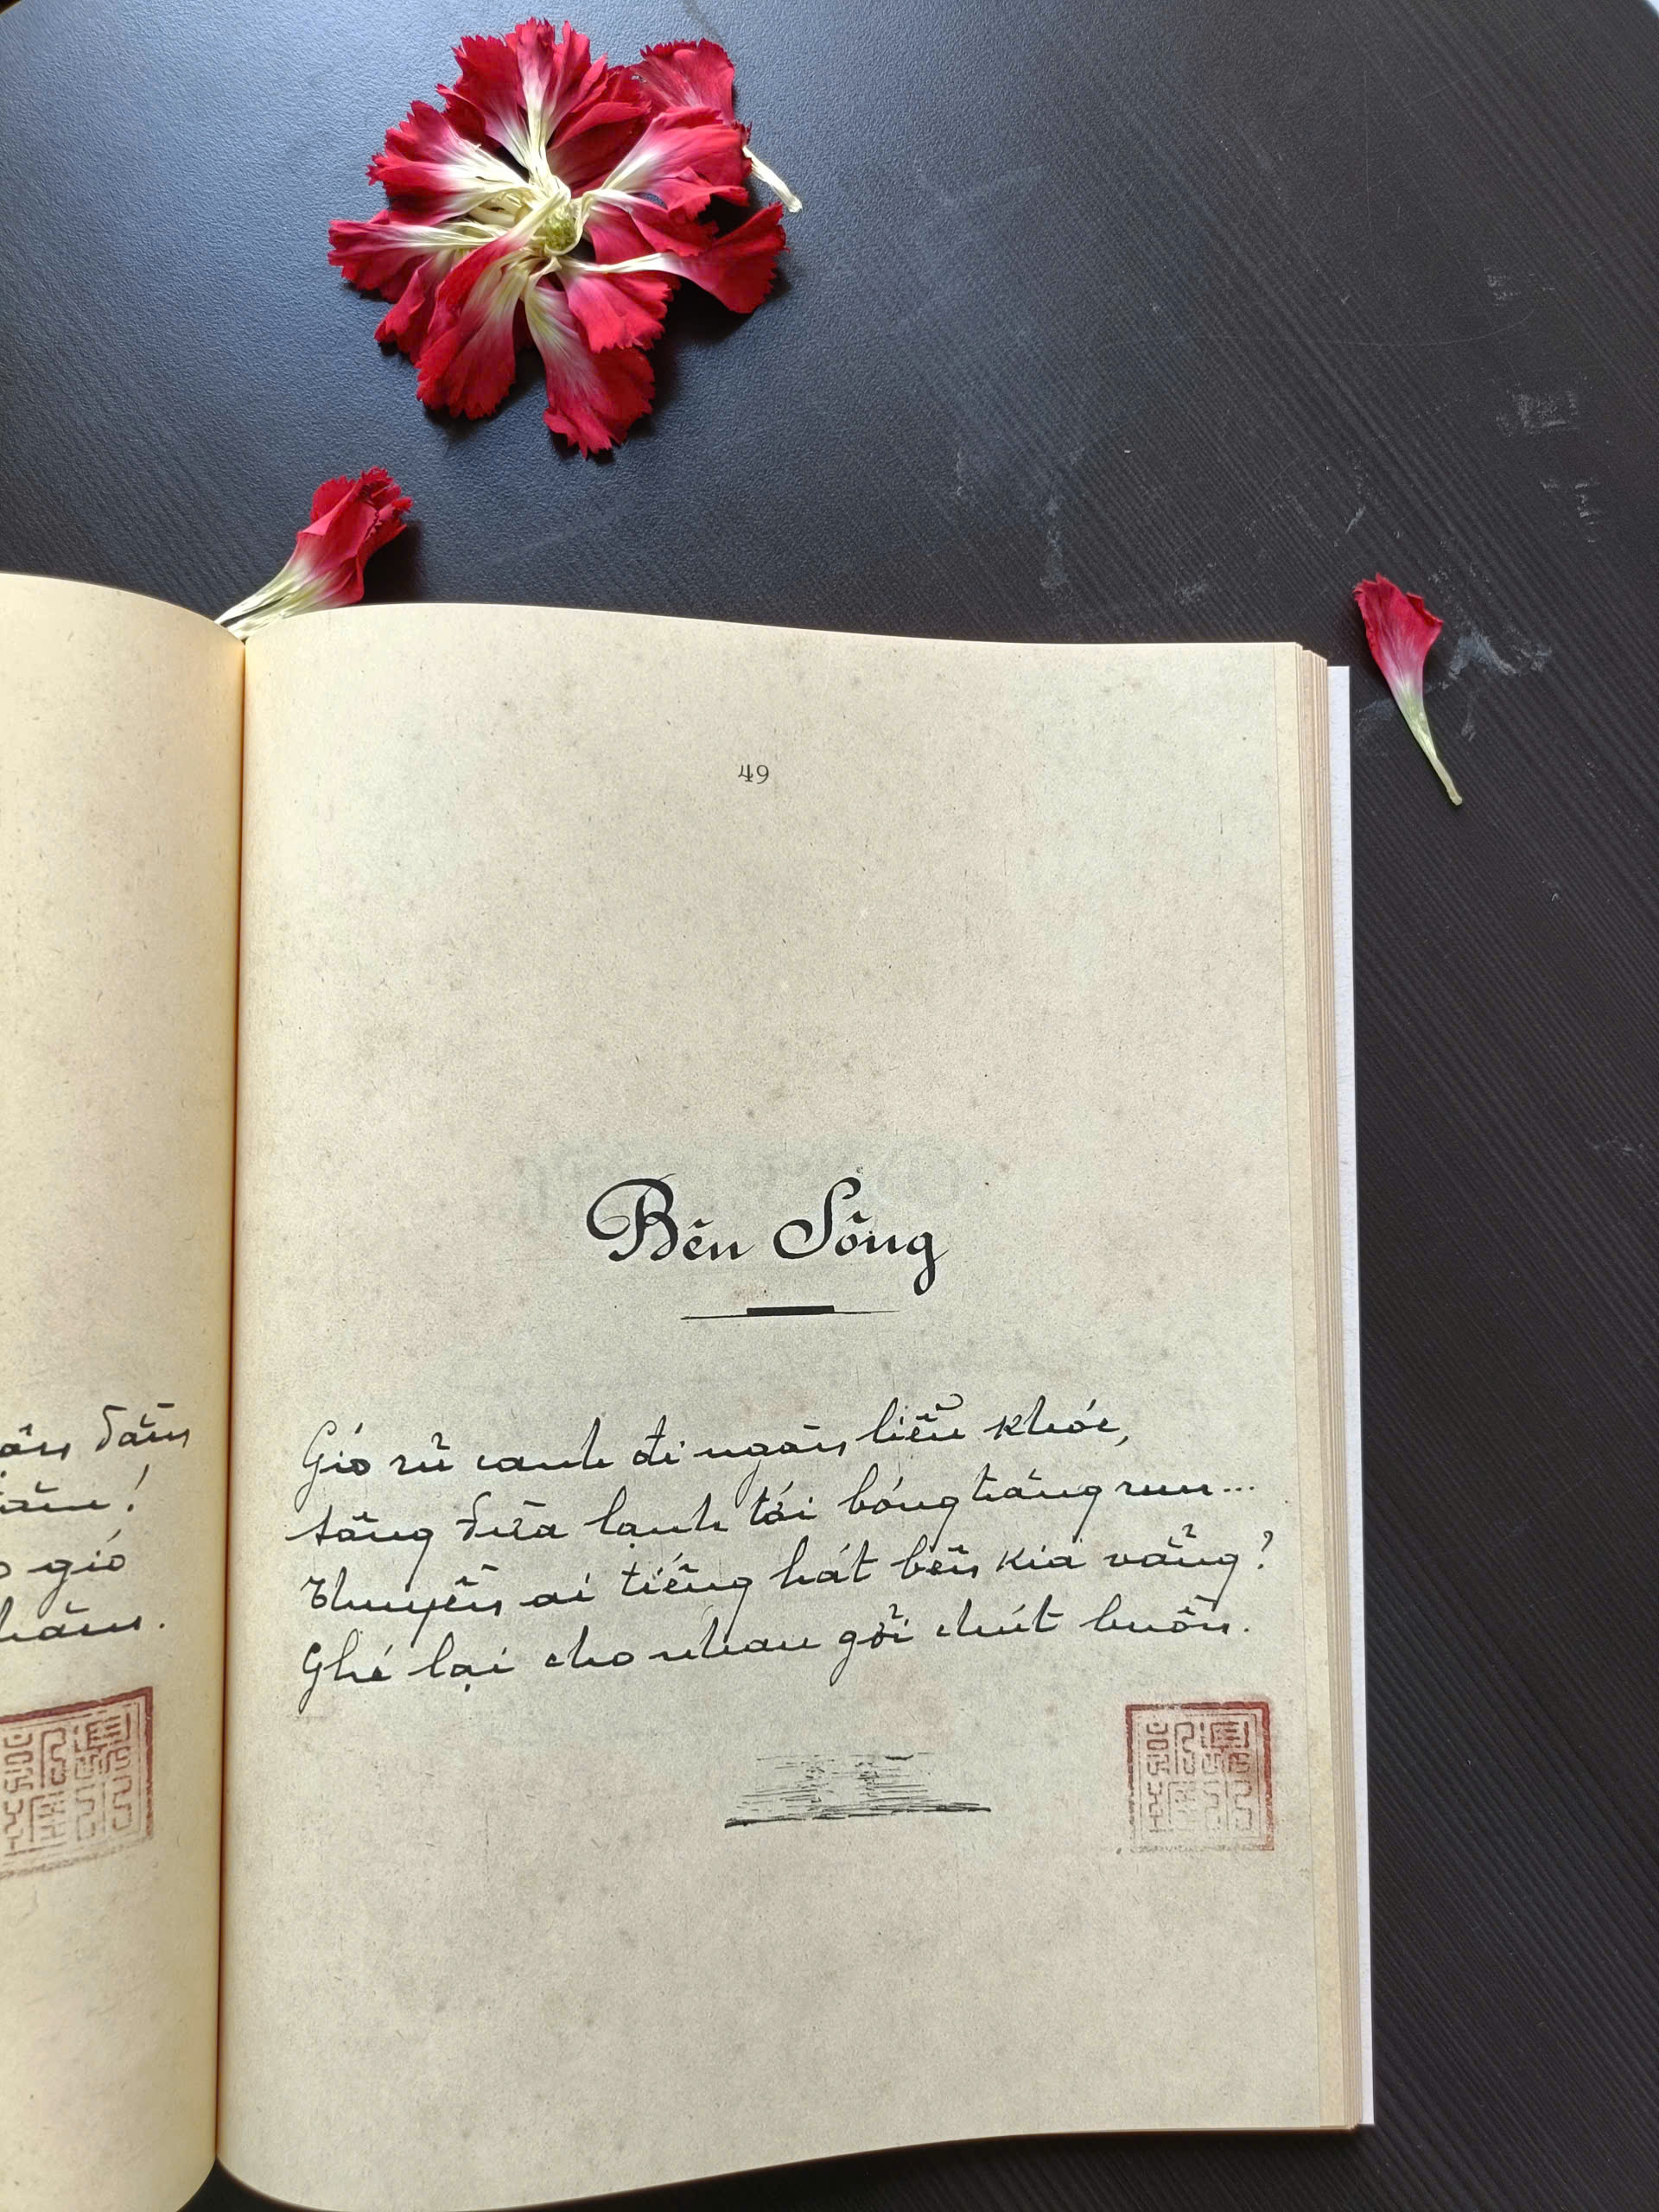 ần dầm
gió
49
Bến Sông
Gió rũ canh đi ngàn liễu khóc,
sông đưa lạnh tới bóng trăng run...
Thuyền ai tiếng hát bên kia vẳng?
Ghé lại cho nhau gởi chút buồn.